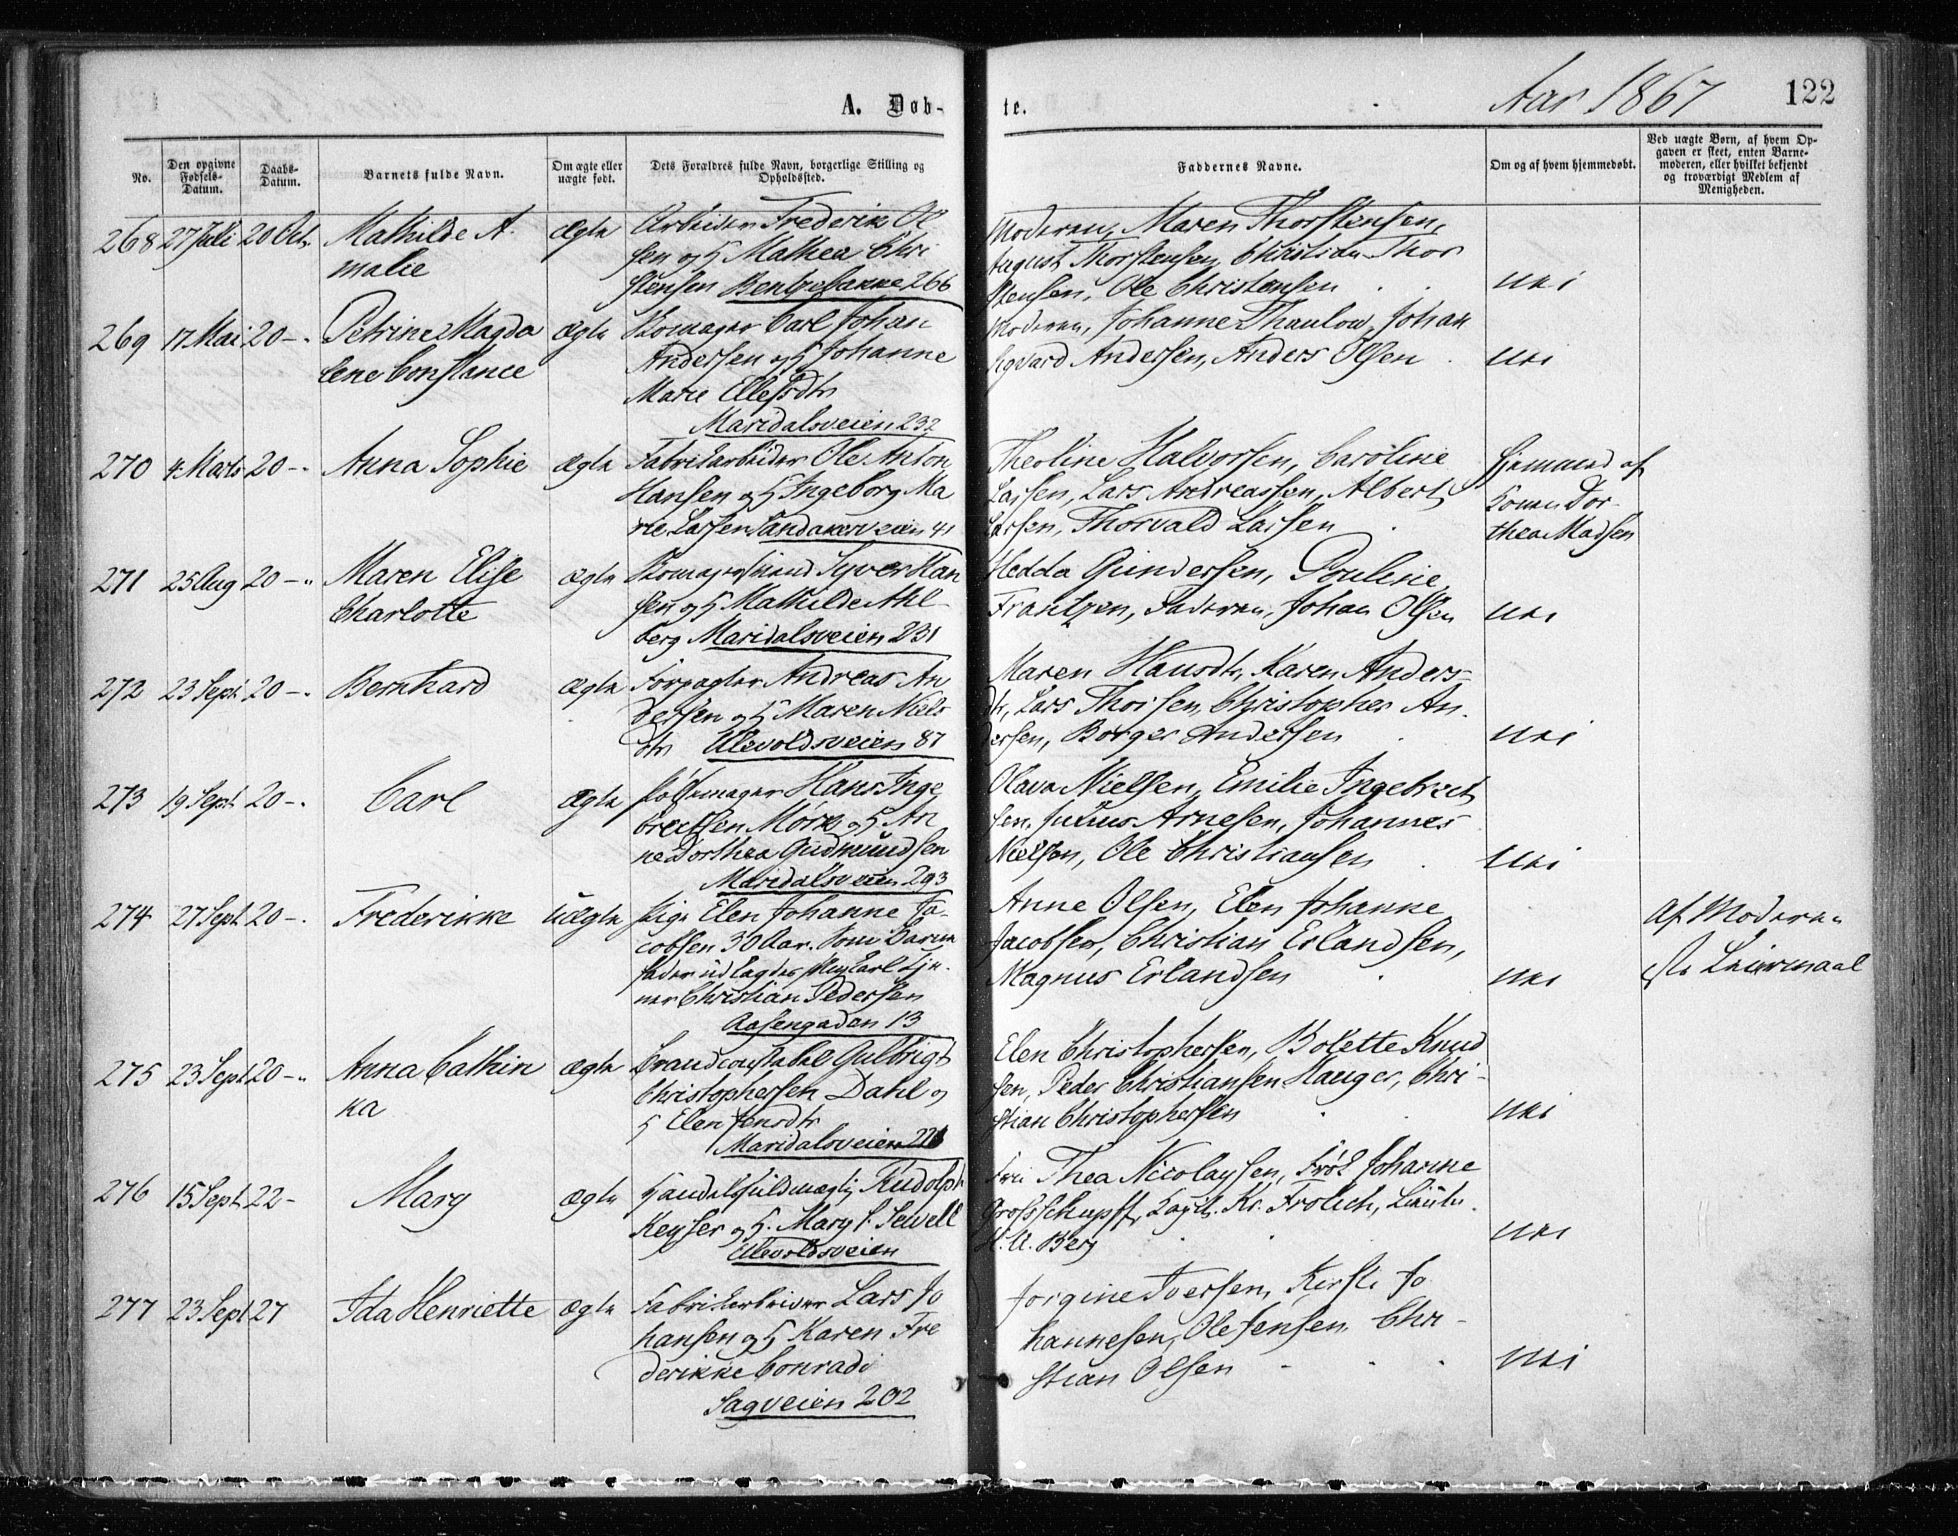 A. Døb-
te.
Aar 1867
122
No.
Den opgivne Fødsels-Datum.
Daabs-Datum.
Barnets fulde Navn.
Om ægte eller uægte født.
Dets Forældres fulde Navn, borgerlige Stilling og Opholdssted.
Faddernes Navne.
Om og af hvem hjemmedøbt.
Ved uægte Børn, af hvem Opgaven er skeet, enten Barnemoderen, eller hvilket bekjendt og troværdigt Medlem af Menigheden.
268 27 Juli 20 Octr Mathilde A- ægte Arbeider Frederik Ol
malie sen og H Mathea Chri
stensen Bentsebakke 266
Moderen, Maren Thorstensen,
August Thorstensen, Christian Thor
stensen, Ole Christensen
nei
269 17 Mai 20 -. Petrine Magda ægte Skomager Carl Johan
lene Constance Andersen og H Johanne
Marie Ellefsdtr
Maridalsveien 232
Moderen, Johanne Thaulow, Johan
Sigvard Andersen, Anders Olsen
nei
270 4 Marts 20 -. Anna Sophie ægte Fabrikarbeider Ole Anton
Hansen og H Ingeborg Ma
rie Larsen Sandakerveien 41
Theoline Halvorsen, Caroline
Larsen, Lars Andreassen, Albert
Larsen, Thorvald Larsen
Hjemmed af
Konen Dor-
thea Madsen
271 25 Aug 20 -. Maren Elise ægte Skomagersvend Syver Han
Charlotte sen og H Mathilde Ahl-
berg Maridalsveien 231
Hedda Gundersen, Pouline
Frantzen, Faderen, Johan Olsen
nei
272 23 Sept 20 -. Bernhard ægte Forpagter Andreas An
dersen og H Maren Niels
dtr Ullevoldsveien 87
Maren Hansdtr, Karen Anders-
dtr, Lars Thorsen, Christopher An-
dersen, Borger Andersen
nei
273 19 Sept 20 -. Carl ægte Pølsemager Hans Inge
bretsen Mørk og H An
ne Dorthea Gudmundsen
Maridalsveien 293
Olava Nielsen, Emilie Ingebret
sen, Julius Arnesen, Johannes
Nielsen, Ole Christiansen
nei
274 27 Sept 20 -. Frederikke uægte Pige Elen Johanne Ja-
cobsen 30 Aar. Som Barne
fader udlagdes Ungkarl Tje-
ner Christian Pedersen
Aasengaden 13
Anne Olsen, Elen Johanne
Jacobsen, Christian Erlandsen,
Magnus Erlandsen
nei
Af Moderen
Leiermaal
275 23 Sept 20 -. Anna Cathin ægte Brandconstabel Gulbrigt
ka Christophersen Dahl og
H Elen Jensdtr
Maridalsveien
Elen Christophersen, Bolette Knud
sen, Peder Christiansen Hauger, Chri-
stian Christophersen
nei
276 15 Sept 22 - Mary ægte Handelsfuldmægtig Rudolph
Keyser og H. Mary S. Sewell
Ullevoldsveien
Fru Thea Nicolaysen, Frøk Johanne
Grosschupff, Kr. Frølich,
H. A. Berg
nei
277 23 Sept 27 Ida Henriette ægte Fabrikarbeider Lars Jo
hansen og H Karen Fre
derikke Conradi
Sagveien 202
Jorgine Iversen, Kersti Jo
hannesen, Ole Jensen, Chri-
stian Olsen
nei